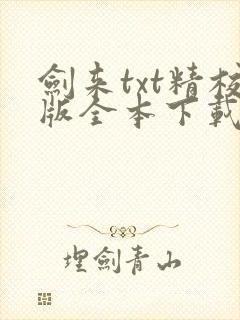 劍来txt精校
版全本下載
埋劍青山